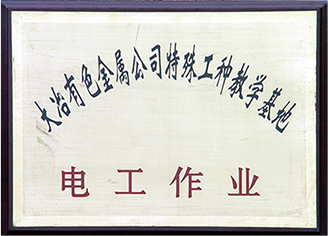 大冶有色金属公司特殊工种教学基地
电工作业